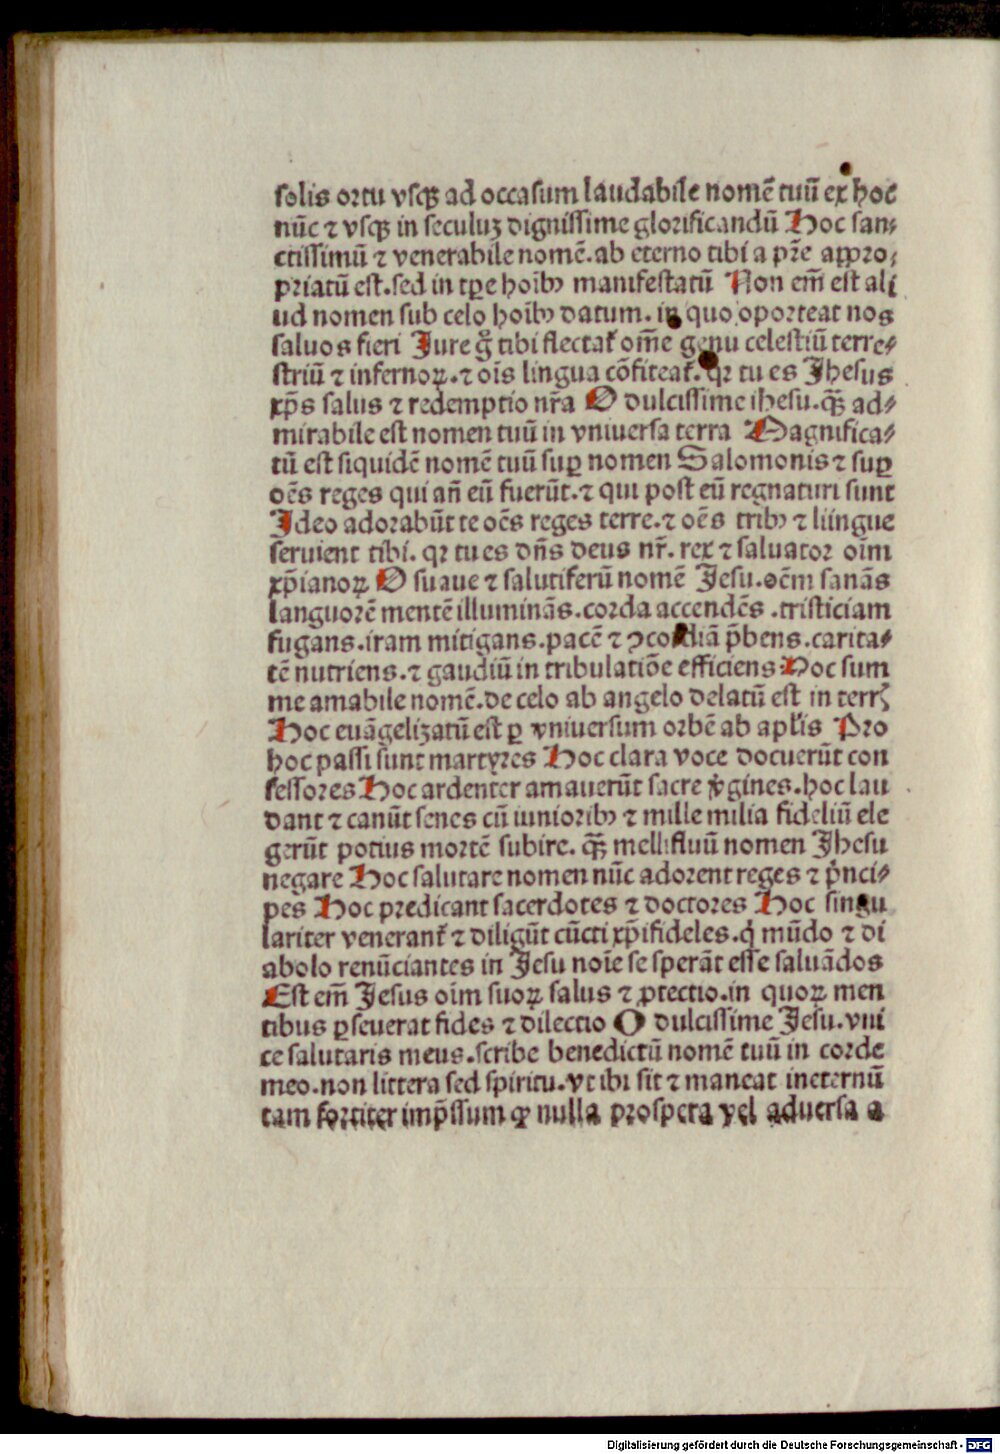 solis ortu vsqꝫ ad occasum laudabile nomē tuū ex hoc
nūc ⁊ vsqꝫ in seculuꝫ dignissime glorificandū Hoc san⸗
ctissimū ⁊ venerabile nomē. ab eterno tibi a pr̄e appro⸗
priatū est. sed in tꝑe hoībꝰ manifestatū Non em̄ est ali
ud nomen sub celo hoībꝰ datum. in quo oporteat nos
saluos fieri Iure g̊ tibi flectat̄ om̄e genu celestiū terre⸗
striū ⁊ infernoꝝ. ⁊ oīs lingua cōfiteat̄. qꝛ tu es Jhesus
xp̄s salus ⁊ redemptio nr̄a O dulcissime ihesu. qꝫ̄ ad⸗
mirabile est nomen tuū in vniuersa terra Magnifica⸗
tū est siquidē nomē tuū suꝑ nomen Salomonis ⁊ suꝑ
oēs reges qui an̄ eū fuerūt. ⁊ qui post eū regnaturi sunt
Ideo adorabūt te oēs reges terre. ⁊ oēs tribꝰ ⁊ liingue
seruient tibi. qꝛ tu es dn̄s deus nr̄. rex ⁊ saluator oīm
xp̄ianoꝝ O suaue ⁊ salutiferū nomē Jesu. oēm sanās
languorē mentē illuminās. corda accendēs . tristiciam
fugans. iram mitigans. pacē ⁊ ꝯcordiā p̄bens. carita⸗
tē nutriens. ⁊ gaudiū in tribulatiōe efficiens Hoc sum
me amabile nomē. de celo ab angelo delatū est in terrꝭ
Hoc euāgelizatū est ꝑ vniuersum orbē ab apl̄is Pro
hoc passi sunt martyres Hoc clara voce docuerūt con
fessores Hoc ardenter amauerūt sacre v̓gines. hoc lau
dant ⁊ canūt senes cū iunioribꝰ ⁊ mille milia fideliū ele
gerūt potius mortē subire. qꝫ̄ mellifluū nomen Jhesu
negare Hoc salutare nomen nūc adorent reges ⁊ p̓nci⸗
pes Hoc predicant sacerdotes ⁊ doctores Hoc singu
lariter venerant̄ ⁊ diligūt cūcti xp̄ifideles. q̓ mūdo ⁊ di
abolo renūciantes in Jesu noīe se sperāt esse saluādos
Est em̄ Jesus oīm suoꝝ salus ⁊ ꝓtectio. in quoꝝ men
tibus ꝑseuerat fides ⁊ dilectio O dulcissime Jesu. vni
ce salutaris meus. scribe benedictū nomē tuū in corde
meo. non littera sed spiritu. vt ibi sit ⁊ maneat ineternū
tam fortiter imp̄ssum ꝙ nulla prospera vel aduersa a
Digitalisierung gefördert durch die Deutsche Forschungsgemeinschaft - DFG